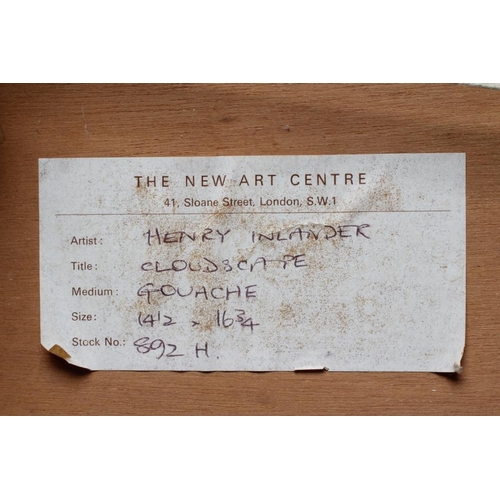 THE NEW ART CENTRE
41, Sloane Street, London, S.W.1
Artist: HENRY INLANDER
Title: CLOUDSCAPE
Medium: GOUACHE
Size: 14½ x 16¾
Stock No.: 892 H.